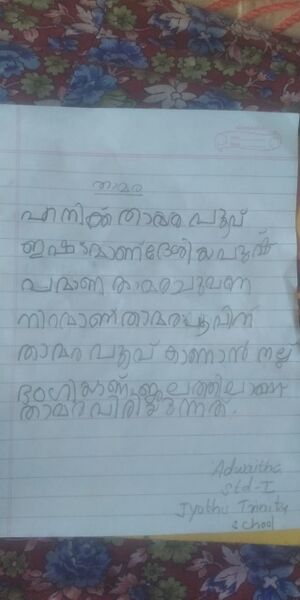 താമര
എനിക്ക് താമര പൂവ്
ഇഷ്ടമാണ് ദേശിയ പുഷ്
പമാണ് താമര ചുവന്ന
നിറമാണ് താമരപൂവിന്
താമര പൂവ് കാണാൻ നല്ല
ഭംഗിയാണ് ജലത്തിലാണ്
താമര വിരിയുന്നത്.
Adwaitha
Std-I
Jyothis Trinity
School